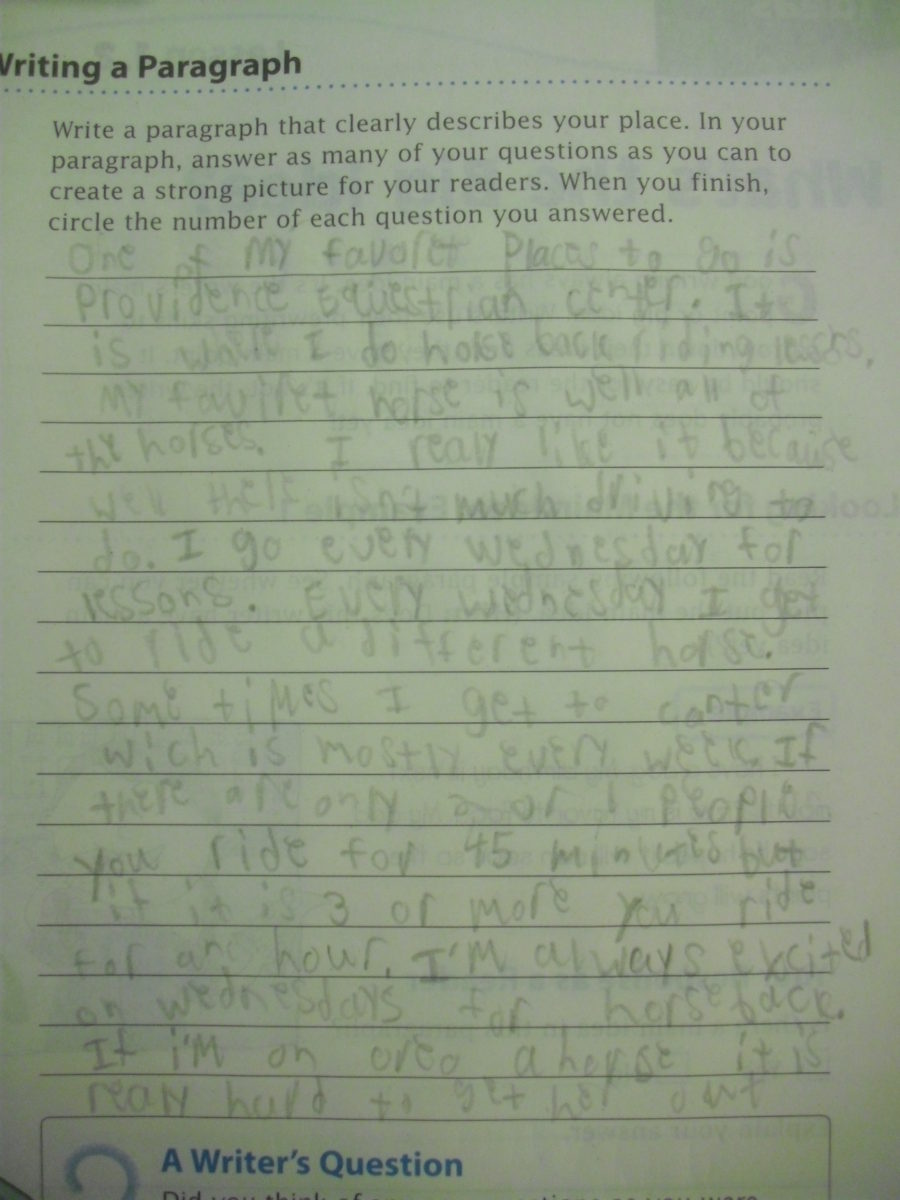 Writing a Paragraph
Write a paragraph that clearly describes your place. In your
paragraph, answer as many of your questions as you can to
create a strong picture for your readers. When you finish,
circle the number of each question you answered.
One of My favoret Places to go is
Providence equestrian center. It
is where I do horse back riding
My favriet horse is well all of
the horses. I realy like it because
well there isnt much driving to
do. I go every wednesday for
lessons. Every wednesday I get
to ride a different horse.
Some times I get to canter
wich is mostly every week. If
there are only 2 or 1 people
you ride for 45 but
if it is 3 or more you ride
for an hour. I'M always excited
on wednesdays for horseback.
If i'M on oreo a horse it is
realy hard to get her out
A Writer's Question
Did you think of